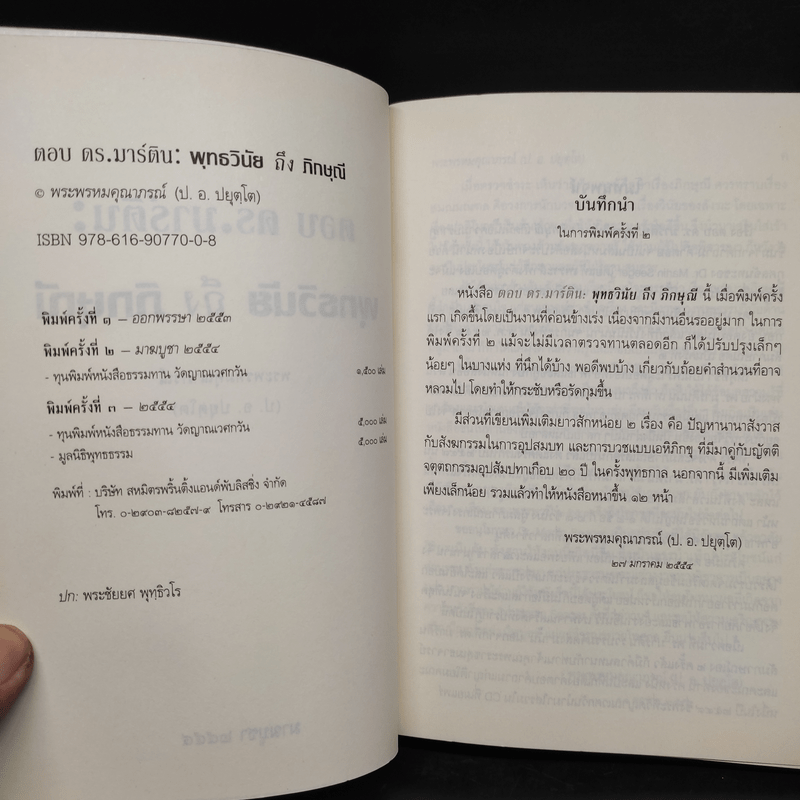 ตอบ ดร.มาร์ติน: พุทธวินัย ถึง ภิกษุณี
© พระพรหมคุณาภรณ์ (ป. อ. ปยุตฺโต)
ISBN 978-616-90770-0-8
พิมพ์ครั้งที่ ๑ – ออกพรรษา ๒๕๕๓
พิมพ์ครั้งที่ ๒ – มาฆบูชา ๒๕๕๔
- ทุนพิมพ์หนังสือธรรมทาน วัดญาณเวศกวัน ๑,๕๐๐ เล่ม
พิมพ์ครั้งที่ ๓ – ๒๕๕๔
- ทุนพิมพ์หนังสือธรรมทาน วัดญาณเวศกวัน ๕,๐๐๐ เล่ม
- มูลนิธิพุทธธรรม ๕,๐๐๐ เล่ม
พิมพ์ที่ : บริษัท สหมิตรพริ้นติ้งแอนด์พับลิสชิ่ง จำกัด
โทร. ๐-๒๙๐๓-๘๒๕๗-๙ โทรสาร ๐-๒๙๒๑-๔๕๘๗
ปก: พระชัยยศ พุทฺธิวโร
บันทึกนำ
ในการพิมพ์ครั้งที่ ๒
หนังสือ ตอบ ดร.มาร์ติน: พุทธวินัย ถึง ภิกษุณี นี้ เมื่อพิมพ์ครั้ง
แรก เกิดขึ้นโดยเป็นงานที่ค่อนข้างเร่ง เนื่องจากมีงานอื่นรออยู่มาก ในการ
พิมพ์ครั้งที่ ๒ แม้จะไม่มีเวลาตรวจทานตลอดอีก ก็ได้ปรับปรุงเล็กๆ
น้อยๆ ในบางแห่ง ที่นึกได้บ้าง พอดีพบบ้าง เกี่ยวกับถ้อยคำสำนวนที่อาจ
หลวมไป โดยทำให้กระชับหรือรัดกุมขึ้น
มีส่วนที่เขียนเพิ่มเติมยาวสักหน่อย ๒ เรื่อง คือ ปัญหานานาสังวาส
กับสังฆกรรมในการอุปสมบท และการบวชแบบเอหิภิกขุ ที่มีมาคู่กับญัตติ
จตุตถกรรมอุปสัมปทาเกือบ ๒๐ ปี ในครั้งพุทธกาล นอกจากนี้ มีเพิ่มเติม
เพียงเล็กน้อย รวมแล้วทำให้หนังสือหนาขึ้น ๑๒ หน้า
พระพรหมคุณาภรณ์ (ป. อ. ปยุตฺโต)
๒๗ มกราคม ๒๕๕๔